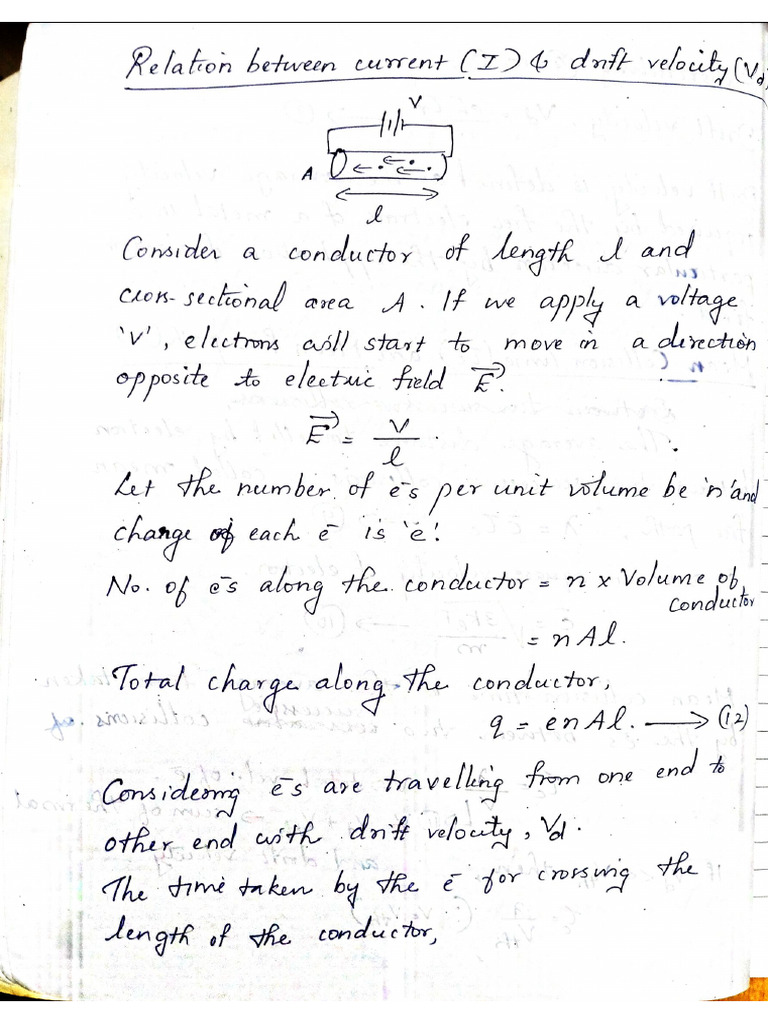 Relation between current (I) & drift velocity (Vd)
V
A
l
Consider a conductor of length l and
cross-sectional area A. If we apply a voltage
'V', electrons will start to move in a direction
opposite to electric field E⃗.
E⃗ = V/l.
Let the number of e⁻s per unit volume be 'n' and
charge of each e⁻ is 'e'.
No. of e⁻s along the conductor = n x Volume of
conductor
= nAl.
Total charge along the conductor,
q = enAl. ⟶ (12)
Considering e⁻s are travelling from one end to
other end with drift velocity, Vd.
The time taken by the e⁻ for crossing the
length of the conductor,